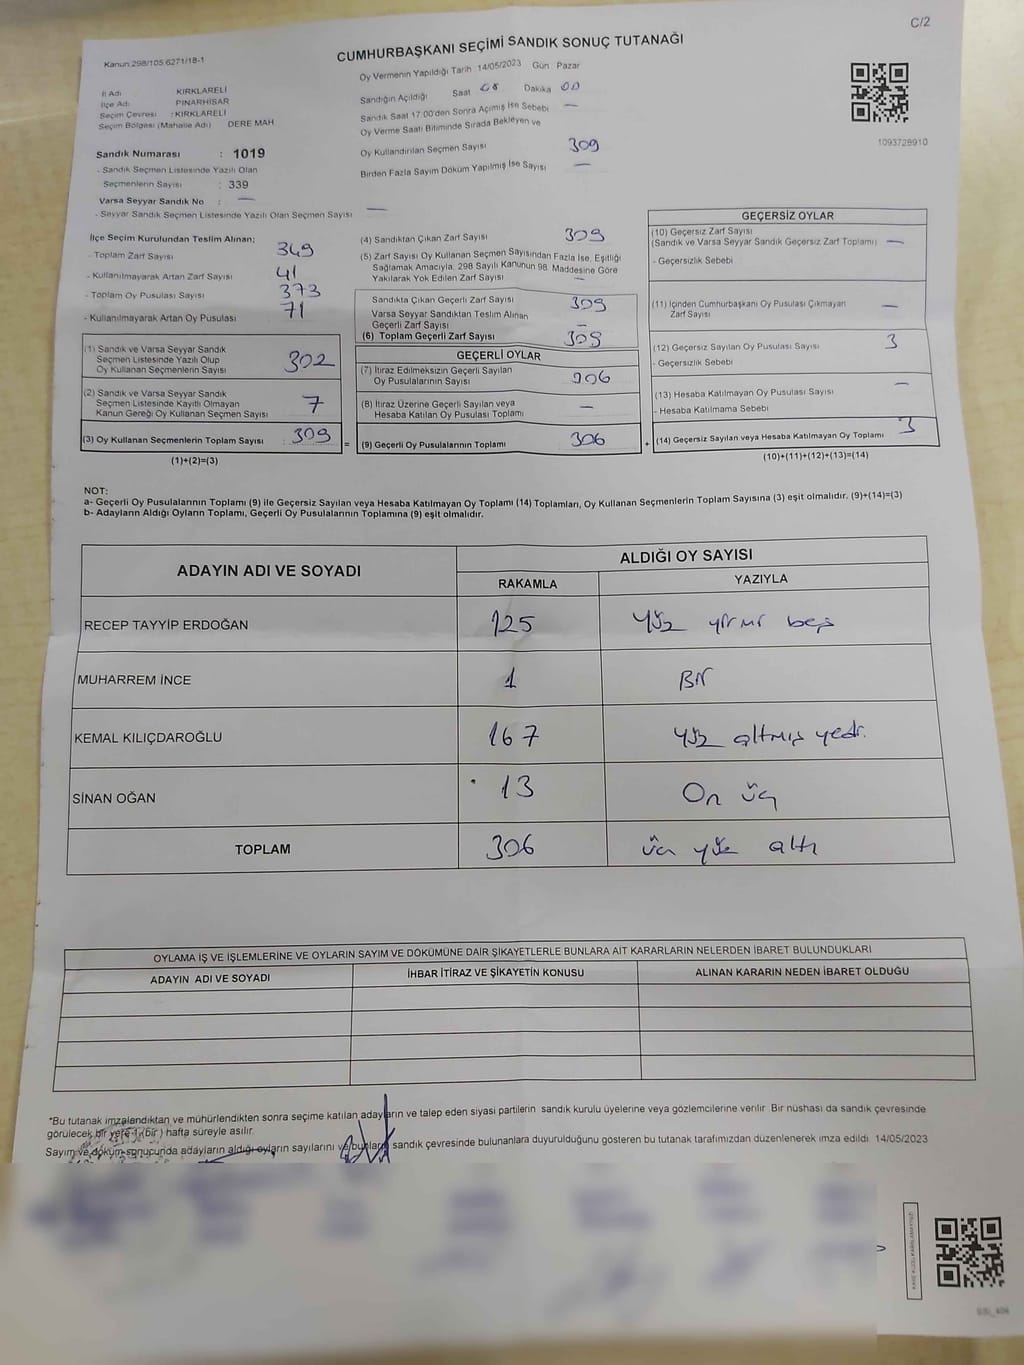 C/2
Kanun 298/105 6271/18-1
CUMHURBAŞKANI SEÇİMİ SANDIK SONUÇ TUTANAĞI
Oy Vermenin Yapıldığı Tarih 14/05/2023 Gün Pazar
İl Adı KIRKLARELİ
İlçe Adı PINARHİSAR
Seçim Çevresi : KIRKLARELİ
Seçim Bölgesi (Mahalle Adı) DERE MAH
Sandığın Açıldığı Saat 08 Dakika 00
Sandık Saat 17:00'den Sonra Açımış İse Sebebi —
Oy Verme Saati Bitiminde Sırada Bekleyen ve
Oy Kullandırılan Seçmen Sayısı 309
Birden Fazla Sayım Döküm Yapılmış İse Sayısı —
1093728910
Sandık Numarası : 1019
- Sandık Seçmen Listesinde Yazılı Olan
Seçmenlerin Sayısı : 339
Varsa Seyyar Sandık No : —
- Seyyar Sandık Seçmen Listesinde Yazılı Olan Seçmen Sayısı —
İlçe Seçim Kurulundan Teslim Alınan;
- Toplam Zarf Sayısı 349
- Kullanılmayarak Artan Zarf Sayısı 41
- Toplam Oy Pusulası Sayısı 373
- Kullanılmayarak Artan Oy Pusulası 71
(1) Sandık ve Varsa Seyyar Sandık
Seçmen Listesinde Yazılı Olup
Oy Kullanan Seçmenlerin Sayısı 302
(2) Sandık ve Varsa Seyyar Sandık
Seçmen Listesinde Kayıtlı Olmayan
Kanun Gereği Oy Kullanan Seçmen Sayısı 7
(3) Oy Kullanan Seçmenlerin Toplam Sayısı : 309
(1)+(2)=(3)
(4) Sandıktan Çıkan Zarf Sayısı 309
(5) Zarf Sayısı Oy Kullanan Seçmen Sayısından Fazla İse, Eşitliği
Sağlamak Amacıyla, 298 Sayılı Kanunun 98. Maddesine Göre
Yakılarak Yok Edilen Zarf Sayısı —
Sandıkta Çıkan Geçerli Zarf Sayısı 309
Varsa Seyyar Sandıktan Teslim Alınan
Geçerli Zarf Sayısı —
(6) Toplam Geçerli Zarf Sayısı 309
GEÇERLİ OYLAR
(7) İtiraz Edilmeksizin Geçerli Sayılan
Oy Pusulalarının Sayısı 906
(8) İtiraz Üzerine Geçerli Sayılan veya
Hesaba Katılan Oy Pusulası Toplamı —
= (9) Geçerli Oy Pusulalarının Toplamı 306
GEÇERSİZ OYLAR
(10) Geçersiz Zarf Sayısı
(Sandık ve Varsa Seyyar Sandık Geçersiz Zarf Toplamı) —
- Geçersizlik Sebebi
(11) İçinden Cumhurbaşkanı Oy Pusulası Çıkmayan
Zarf Sayısı —
(12) Geçersiz Sayılan Oy Pusulası Sayısı 3
- Geçersizlik Sebebi
(13) Hesaba Katılmayan Oy Pusulası Sayısı —
- Hesaba Katılmama Sebebi
+ (14) Geçersiz Sayılan veya Hesaba Katılmayan Oy Toplamı 3
(10)+(11)+(12)+(13)=(14)
NOT:
a- Geçerli Oy Pusulalarının Toplamı (9) ile Geçersiz Sayılan veya Hesaba Katılmayan Oy Toplamı (14) Toplamları, Oy Kullanan Seçmenlerin Toplam Sayısına (3) eşit olmalıdır. (9)+(14)=(3)
b- Adayların Aldığı Oyların Toplamı, Geçerli Oy Pusulalarının Toplamına (9) eşit olmalıdır.
ADAYIN ADI VE SOYADI ALDIĞI OY SAYISI
RAKAMLA YAZIYLA
RECEP TAYYİP ERDOĞAN 125 Yüz yirmi beş
MUHARREM İNCE 1 Bir
KEMAL KILIÇDAROĞLU 167 Yüz altmış yedi.
SİNAN OĞAN 13 On üç
TOPLAM 306 üç yüz altı
OYLAMA İŞ VE İŞLEMLERİNE VE OYLARIN SAYIM VE DÖKÜMÜNE DAİR ŞİKAYETLERLE BUNLARA AİT KARARLARIN NELERDEN İBARET BULUNDUKLARI
ADAYIN ADI VE SOYADI İHBAR İTİRAZ VE ŞİKAYETİN KONUSU ALINAN KARARIN NEDEN İBARET OLDUĞU
*Bu tutanak imzalendıktan ve mühürlendikten sonra seçime katılan adayların ve talep eden siyasi partilerin sandık kurulu üyelerine veya gözlemcilerine verilir. Bir nüshası da sandık çevresinde
görülecek bir yere 1 (bir) hafta süreyle asılır.
Sayım ve döküm sonucunda adayların aldığı oyların sayılarını ve bunların sandık çevresinde bulunanlara duyurulduğunu gösteren bu tutanak tarafımızdan düzenlenerek imza edildi 14/05/2023